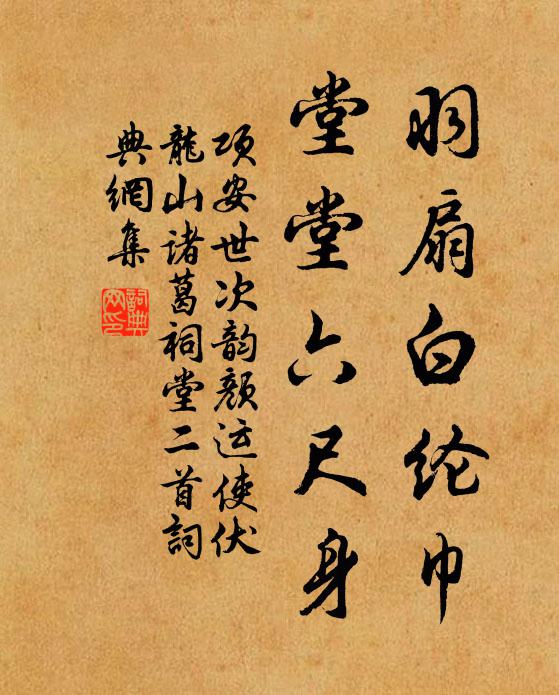 羽扇白纶巾
堂堂六尺身
项安世次韵颜运使伏
龍山诸葛祠堂二首詞
典網集
詞典
网印